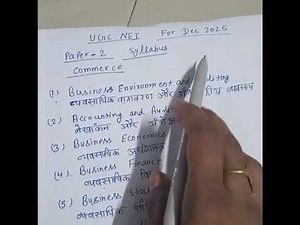 UGC NET For Dec 2025
Paper-2 Syllabus
Commerce
(1) Business Environment and
व्यवसायिक वातावरण और
(2) Accounting and Aud
लेखांकन और
(3) Business Economics
व्यवसायिक अर्थशास्त्र
(4). Business Finance
व्यवसायिक वि
(5) Business Sta
व्यवसायिक